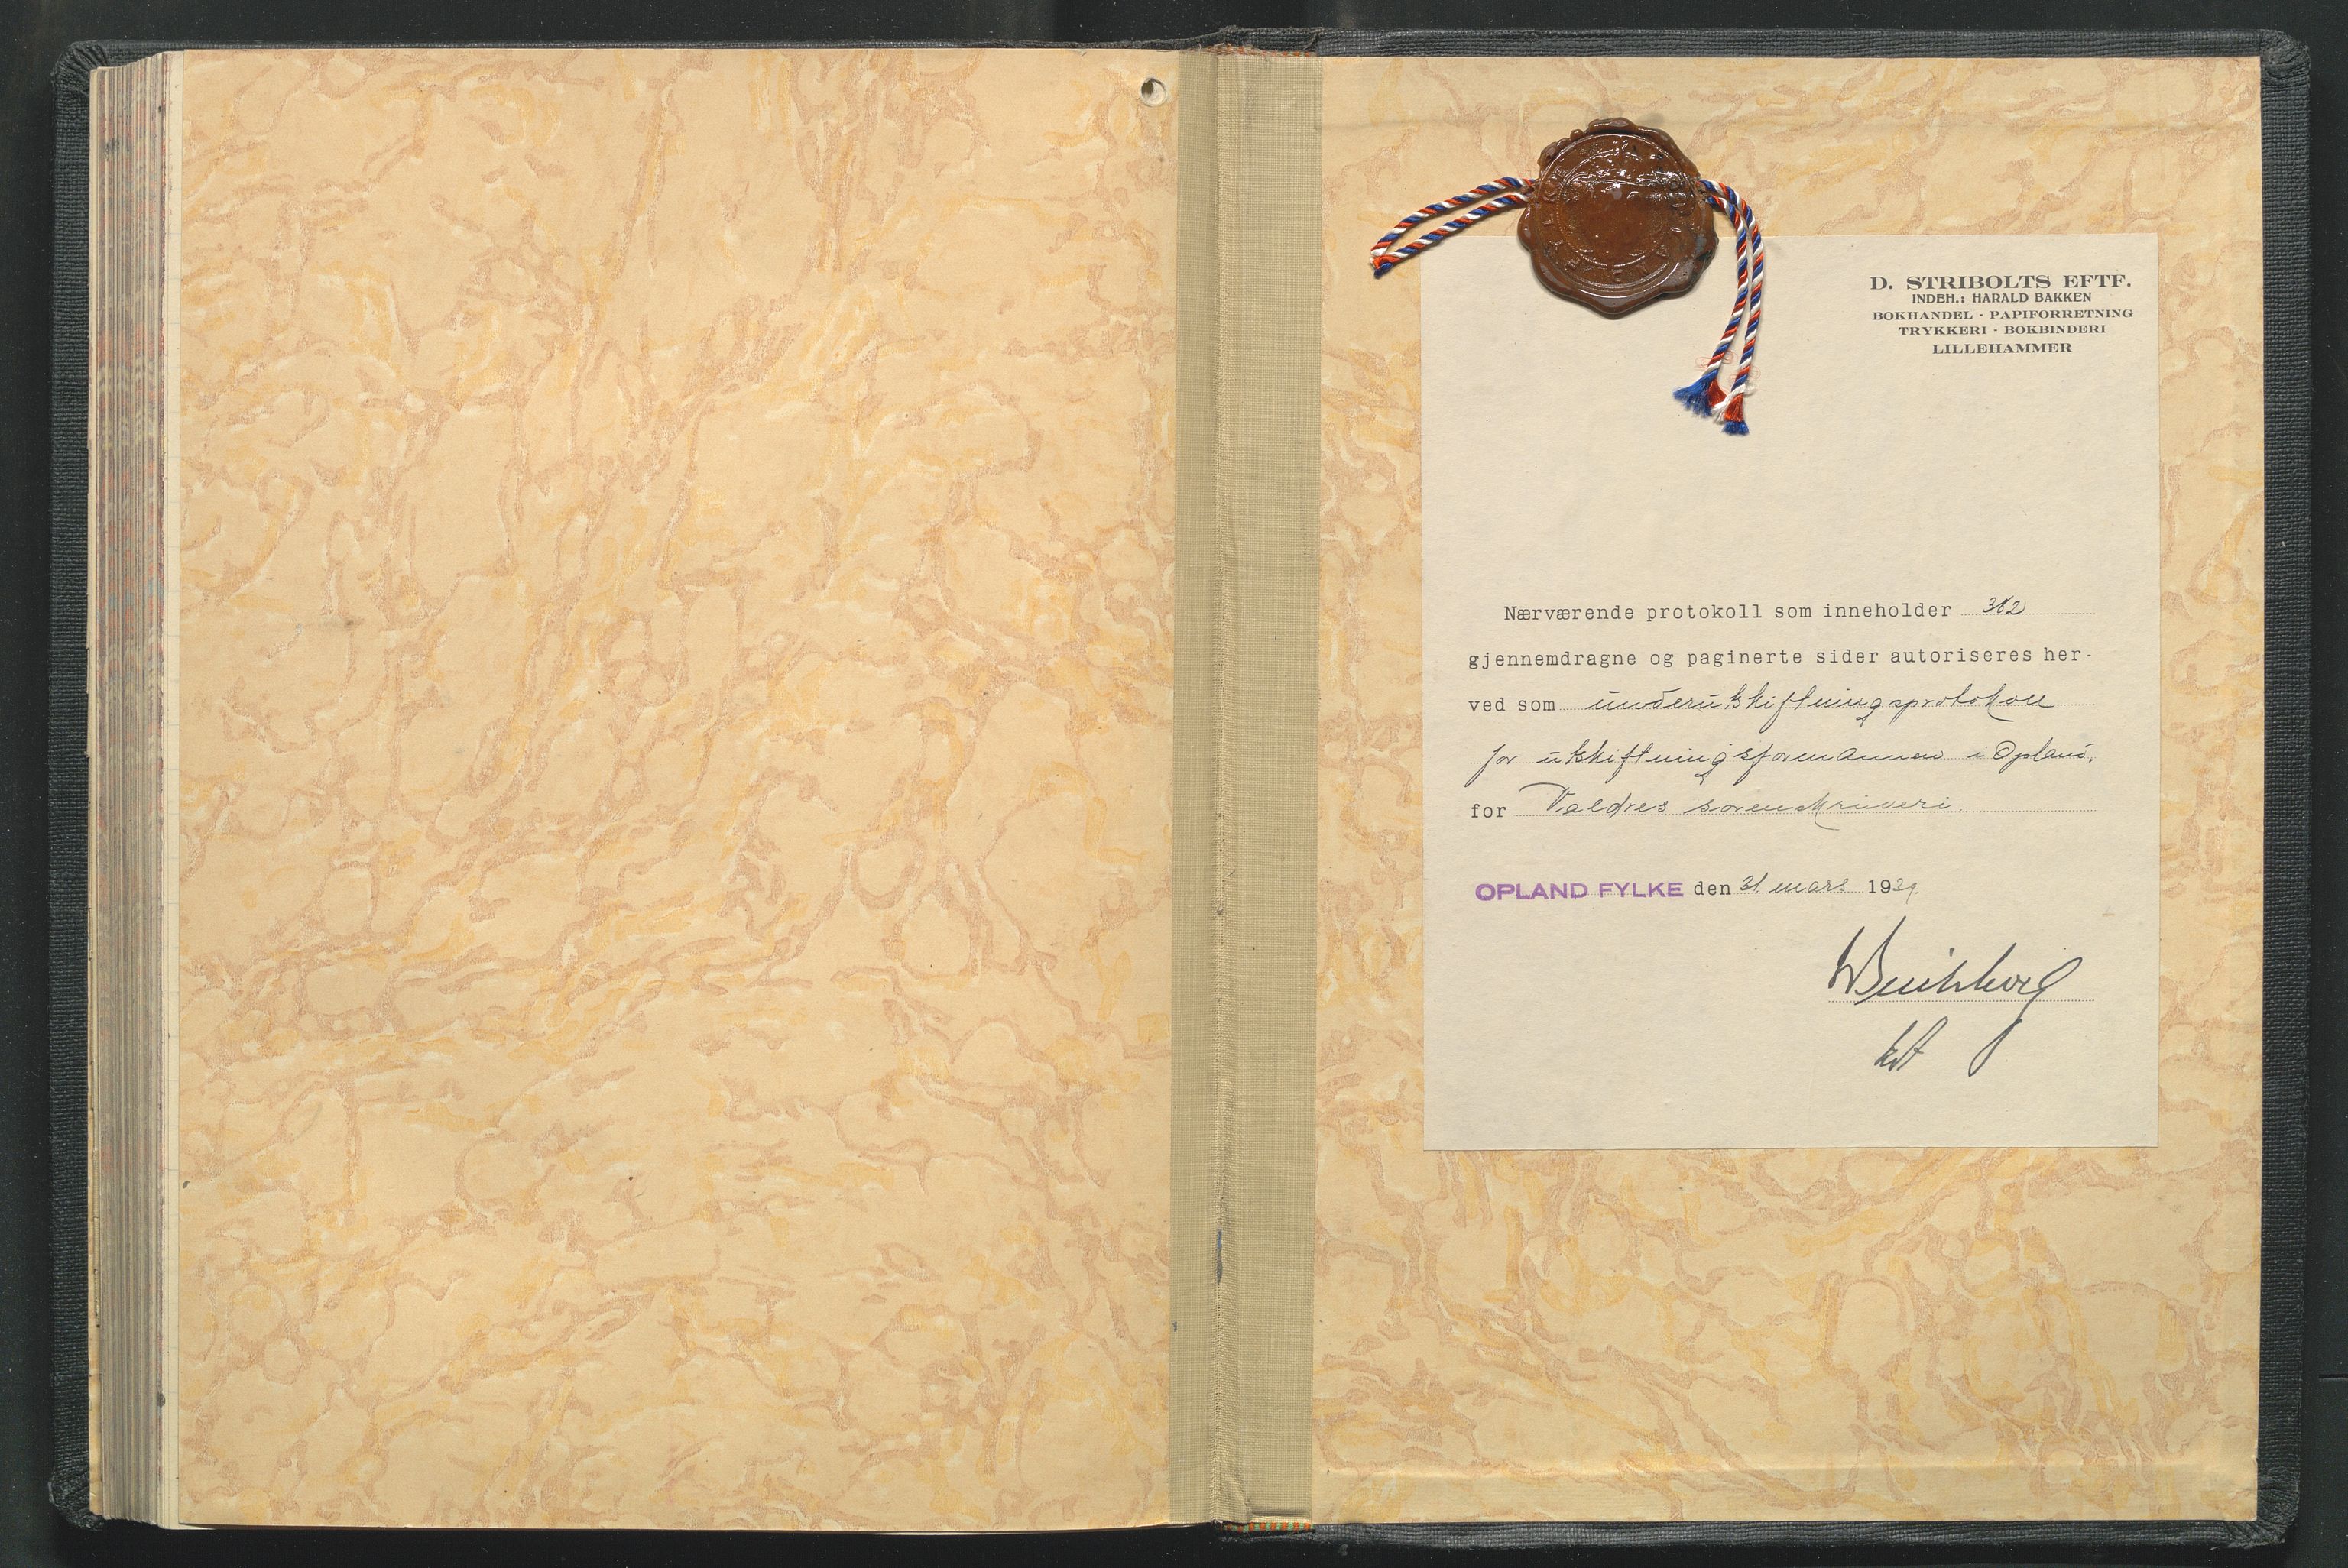 D. STRIBOLTS EFTF.
INDEH.: HARALD BAKKEN
BOKHANDEL · PAPIFORRETNING
TRYKKERI · BOKBINDERI
LILLEHAMMER
Nærværende protokoll som inneholder 382
gjennemdragne og paginerte sider autoriseres her-
ved som underutskiftningsprotokoll
for utskiftningsformannen i Opland,
for Valdres sorenskriveri.
OPLAND FYLKE den 21 mars 1931
kst